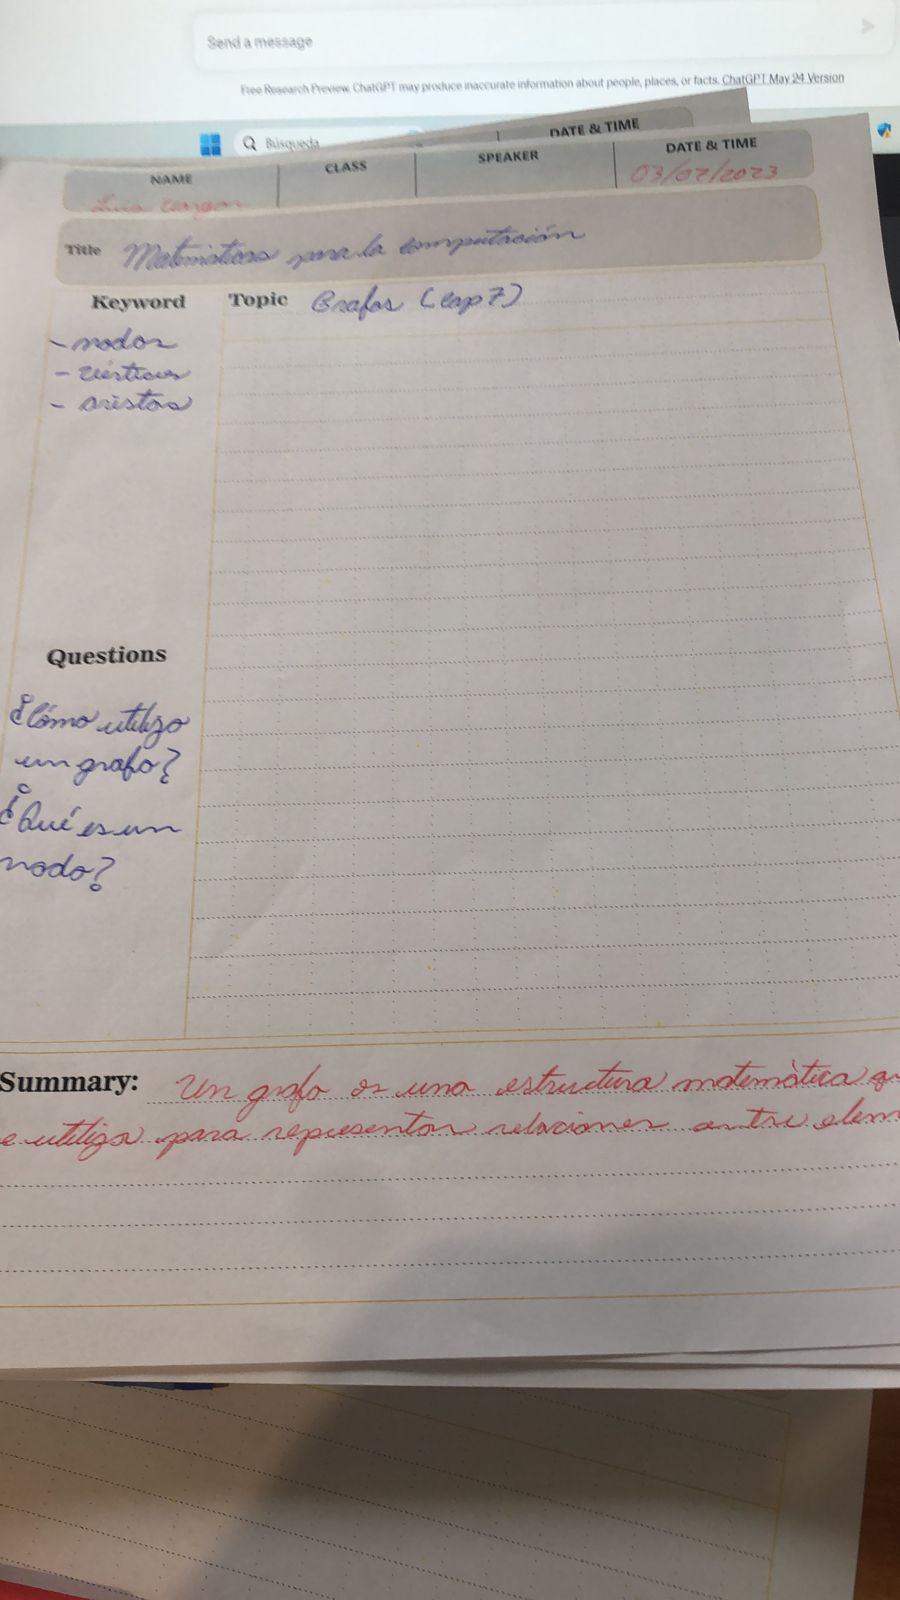 Send a message
Free Research Preview. ChatGPT may produce inaccurate information about people, places, or facts. ChatGPT May 24 Version
Búsqueda
DATE & TIME
NAME CLASS SPEAKER DATE & TIME
Luis 03/07/2023
Title Matemáticas para la computación
Keyword Topic Grafos (cap 7)
- nodos
- vértices
- aristas
Questions
¿Cómo utilizo
un grafo?
¿Qué es un
nodo?
Summary: Un grafo es una estructura matemática qu
e utiliza para representar relaciones entre elem